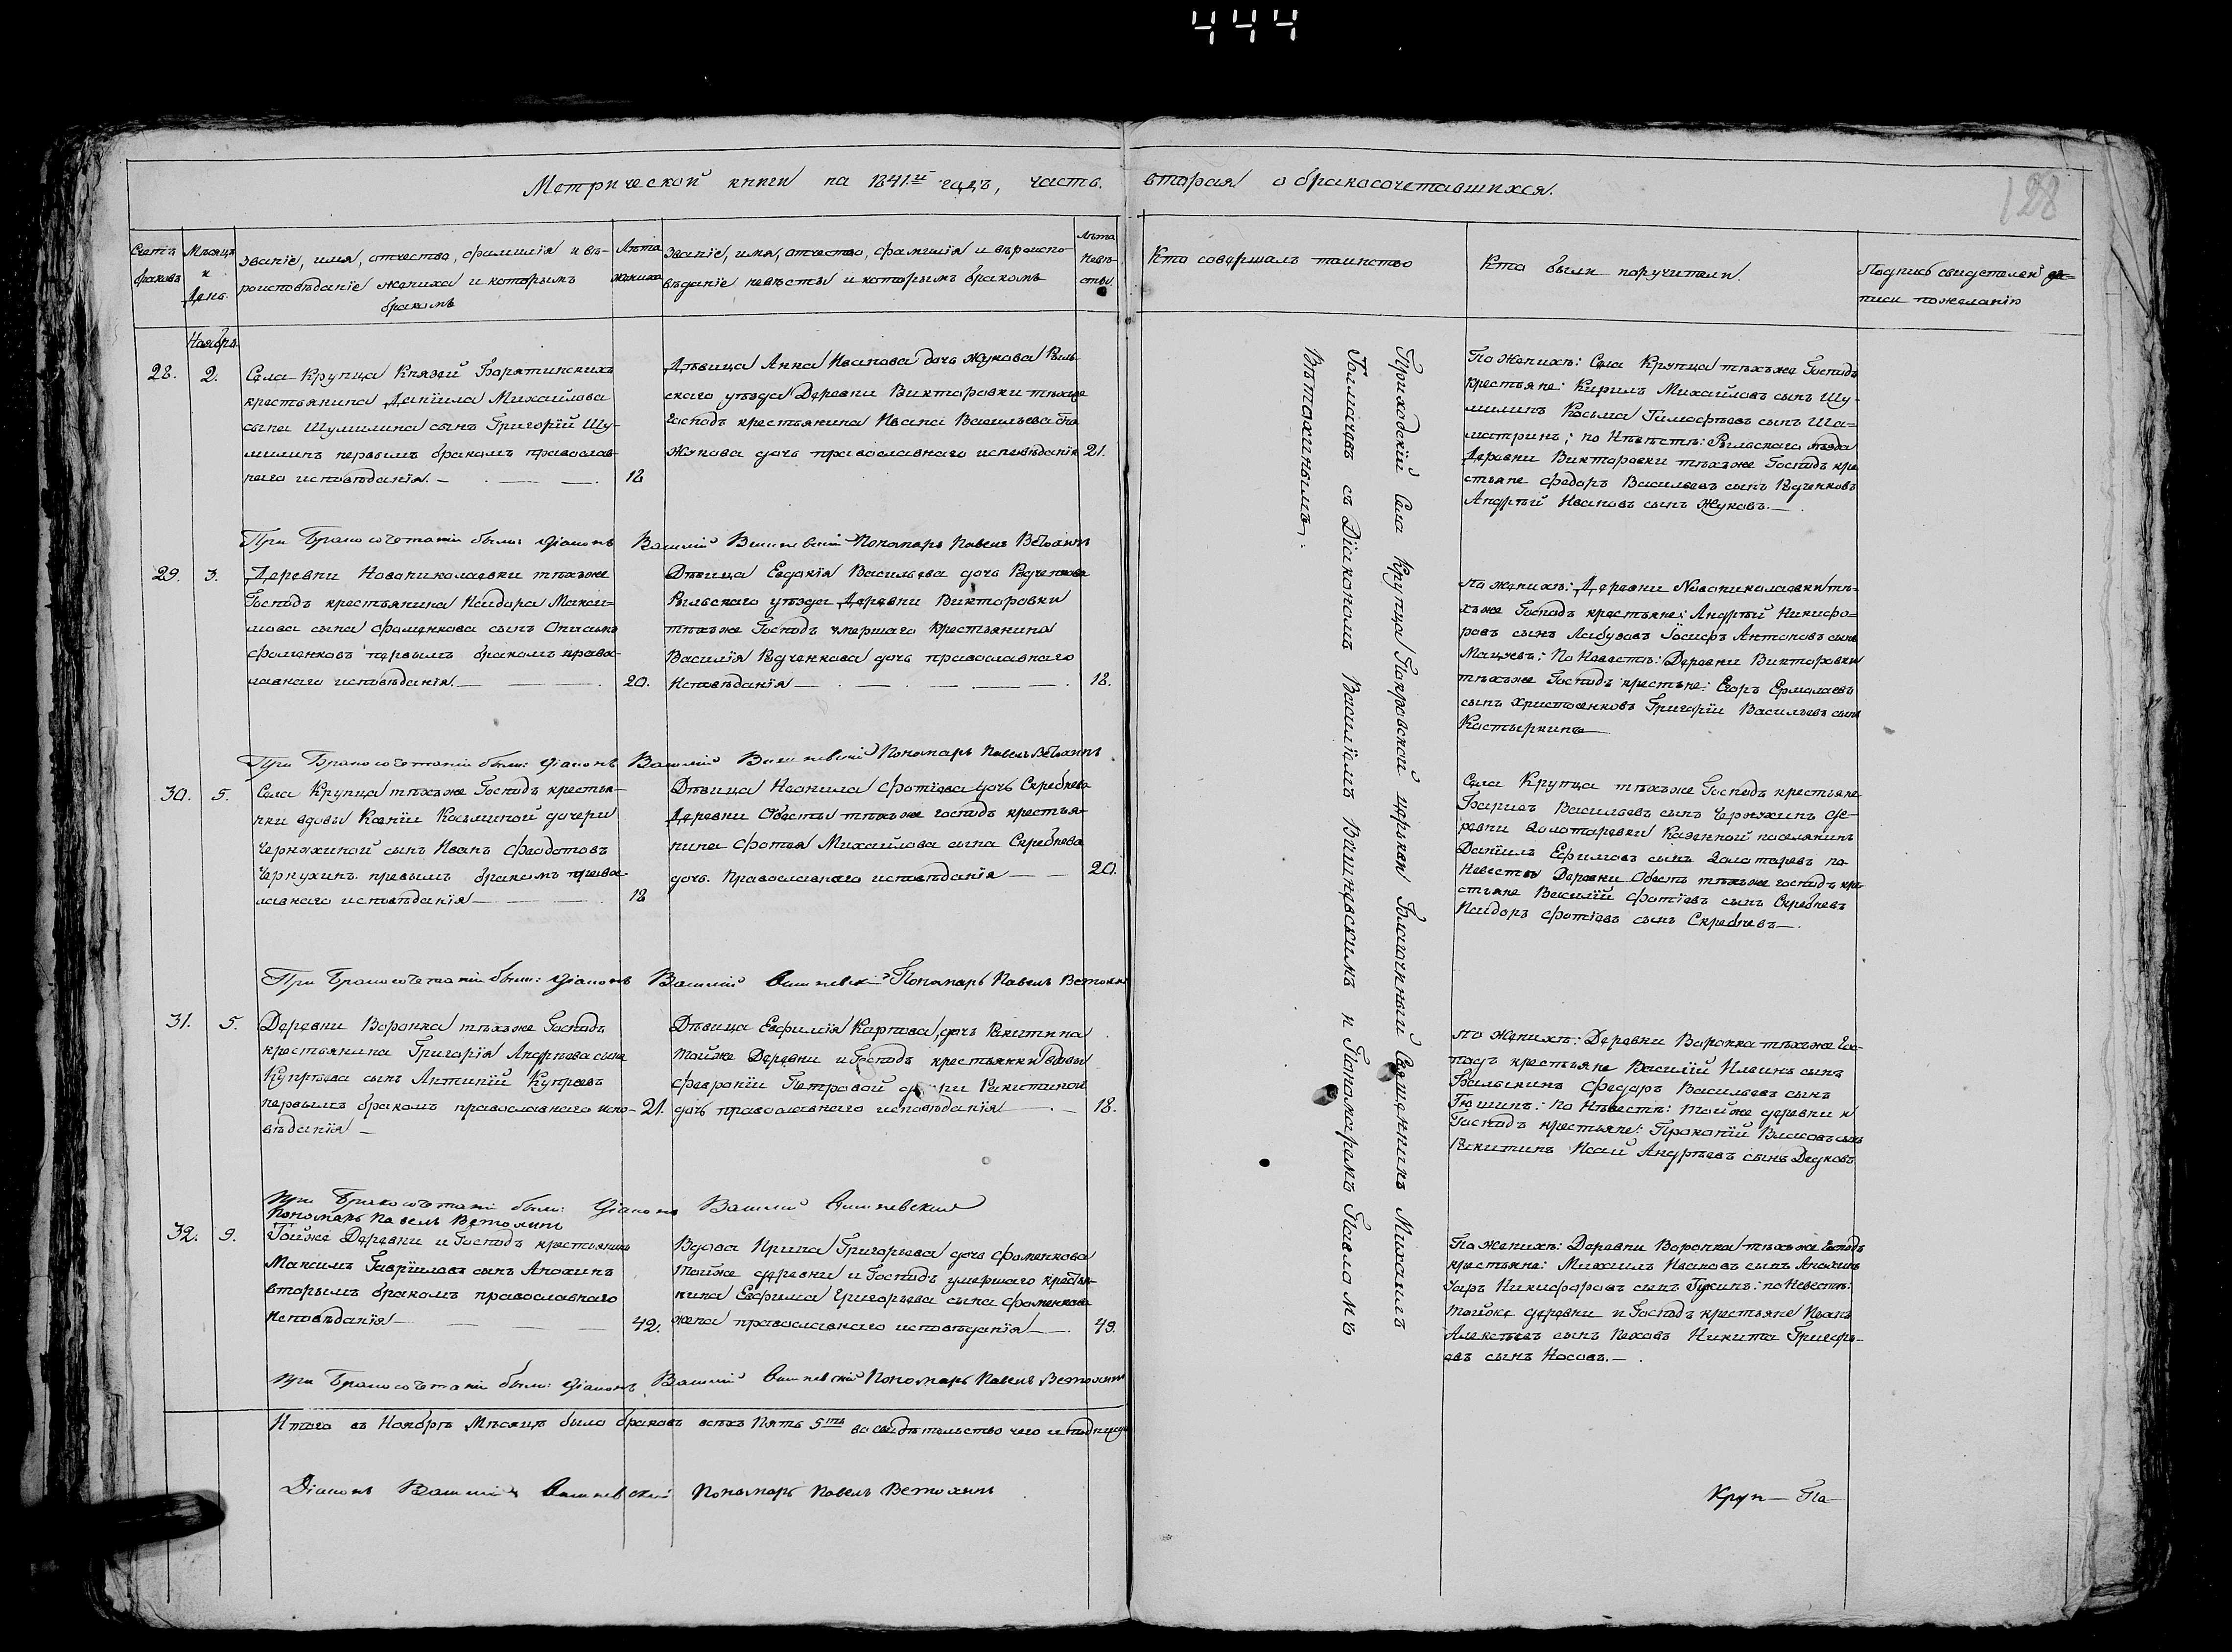 444
Метрической книги на 1841.й годъ, часть вторая о бракосочетавшихся.
128
Счетъ браковъ
Мѣсяцъ и День
Званіе, имя, отчество, фамилія и вѣ-
роисповѣданіе жениха и которымъ
бракомъ
Лѣта жениха
Званіе, имя, отчество, фамилія и вѣроиспо-
вѣданіе невѣсты и которымъ бракомъ
Лѣта Невѣ-
сты.
Кто совершалъ таинство
Кто были поручители.
Подпись свидетелей
писи пожеланію
Ноябрь
28.
2.
Села Крупца Князей Барятинскихъ
крестьянина Данїила Михайлова
сына Шумилина сынъ Григорїй Шу-
милинъ первымъ бракомъ православ-
наго исповѣданїя.
18
Дѣвица Анна Иванова дочь Жукова Рыль-
скаго уѣзда Деревни Викторовки тѣхъже
Господъ крестьянина Ивана Васильева сна
Жукова дочь православнаго исповѣданїя
21.
По Женихѣ: Села Крупца тѣхъже Господъ
крестьяне: Кирилъ Михайловъ сынъ Шу-
милинъ Косьма Тимофѣевъ сынъ Ша=
матринъ; по Нѣвѣстѣ: Рыльскаго уѣзда
Деревни Викторовки тѣхъже Господъ кре
стьяне Федоръ Васильевъ сынъ Рудченковъ
Андрѣй Ивановъ сынъ Жуковъ.
При Бракосочетаніи были: Діаконъ Василій Вишневскій Пономарь Павелъ Ветохинъ
29.
3.
Деревни Новониколаевки тѣхъже
Господъ крестьянина Исидора Макси=
мова сына Фоменкова сынъ
Фоменковъ первымъ бракомъ право-
лавнаго исповѣданїя.
20.
Дѣвица Евдокїя Васильева дочь Рудченкова
Рыльскаго уѣзда Деревни Викторовки
тѣхъже Господъ умершаго крестьянина
Василїя Рудченкова дочь православнаго
Исповѣданїя
18.
По женихѣ: Деревни Новониколаевки тѣ-
хъже Господъ крестьяне: Андрѣй Никифо=
ровъ сынъ Лабузовъ Іосифъ Антоновъ сынъ
Мацуевъ: По Невестѣ: Деревни Викторовки
тѣхъже Господъ крестьяне: Егоръ Ермолаевъ
сынъ Христоенковъ Григорїи Васильевъ сынъ
Костыркинъ
При Бракосочетаніи были: Діаконъ Василій Вишневскій Пономарь Павелъ Ветохинъ
30.
5.
Села Крупца тѣхъже Господъ крестья-
нки вдовы Ксенїи Косьминой дочери
Чернухиной сынъ Иванъ Феодотовъ
Чернухинъ первымъ бракомъ право-
лавнаго исповѣданїя
18
Дѣвица Неонила Фотїева дочь Скребнева
Деревни Обесты тѣхъже господъ крестья-
нина Фотея Михайлова сына Скребнева
дочь Православнаго исповѣданїя
20.
Села Крупца тѣхъже Господъ крестьяне
Борисъ Васильевъ сынъ Чернухинъ де-
ревни Золотаревки Казенной поселянинъ
Данїилъ Ефимовъ сынъ Золотаревъ по
Невестѣ Деревни Обесты тѣхъже господъ кре
стьяне Василїй Фотїевъ сынъ Скребневъ
Исидоръ Фотїевъ сынъ Скребневъ
При Бракосочетаніи были: Діаконъ Василій Вишневскій Пономарь Павелъ Ветохинъ
31.
5.
Деревни Воронка тѣхъже Господъ
крестьянина Григорїя Андрѣева сына
Купрѣева сынъ Антипїй Купреевъ
первымъ бракомъ православнаго испо-
вѣданїя
21.
Дѣвица Евфимїя Карпова дочь Ракитина
Тойже Деревни и Господъ крестьянки вдовы
Февронїи Петровой дочери Ракитиной
дочь православнаго исповѣданїя
18.
По Женихѣ: Деревни Воронка тѣхъже Гос-
подъ крестьяне Василїй Илеинъ сынъ
Федоръ Васильевъ сынъ
Гюшинъ: По Нѣвестѣ: тойже деревни и
Господъ крестьяне: Прокопїй Власовъ сынъ
Ракитинъ Исаій Андрѣевъ сынъ Дедковъ
При Бракосочетаніи были: Діаконъ Василій Вишневскій
Пономарь Павелъ Ветохинъ
32.
9.
Тойже Деревни и Господъ крестьянинъ
Максимъ Гаврїиловъ сынъ Анохинъ
вторымъ бракомъ православнаго
Исповѣданїя
42.
Вдова Ирина Григорьева дочь Фоменкова
Тойже деревни и Господъ умершаго крестья-
нина Евфима Григорьева сына Фоменкова
жена православнаго исповѣданїя
49.
По Женихѣ: Деревни Воронка тѣхъже Господъ
крестьяне: Михаилъ Ивановъ сынъ Анохинъ
Никифоровъ сынъ Гукинъ: по Невестѣ:
тойже деревни и Господъ крестьяне Иванъ
Алексѣевъ сынъ Никита Григорь-
евъ сынъ Носовъ.
При Бракосочетаніи были: Діаконъ Василій Вишневскій Пономарь Павелъ Ветохинъ
Приходскїй Села Крупца Покровской церкви Благочинный Священникъ Михаилъ
Толмачевъ съ Дїакономъ Василїемъ Вишневскимъ и Пономаремъ Павломъ
Вѣтохинымъ.
Итого въ Ноябрѣ Мѣсяцѣ было браковъ всѣхъ Пять 5ть во свидѣтельство чего и подписуемъ
Діаконъ Василій Вишневскій Пономарь Павелъ Ветохинъ
Круп— По—